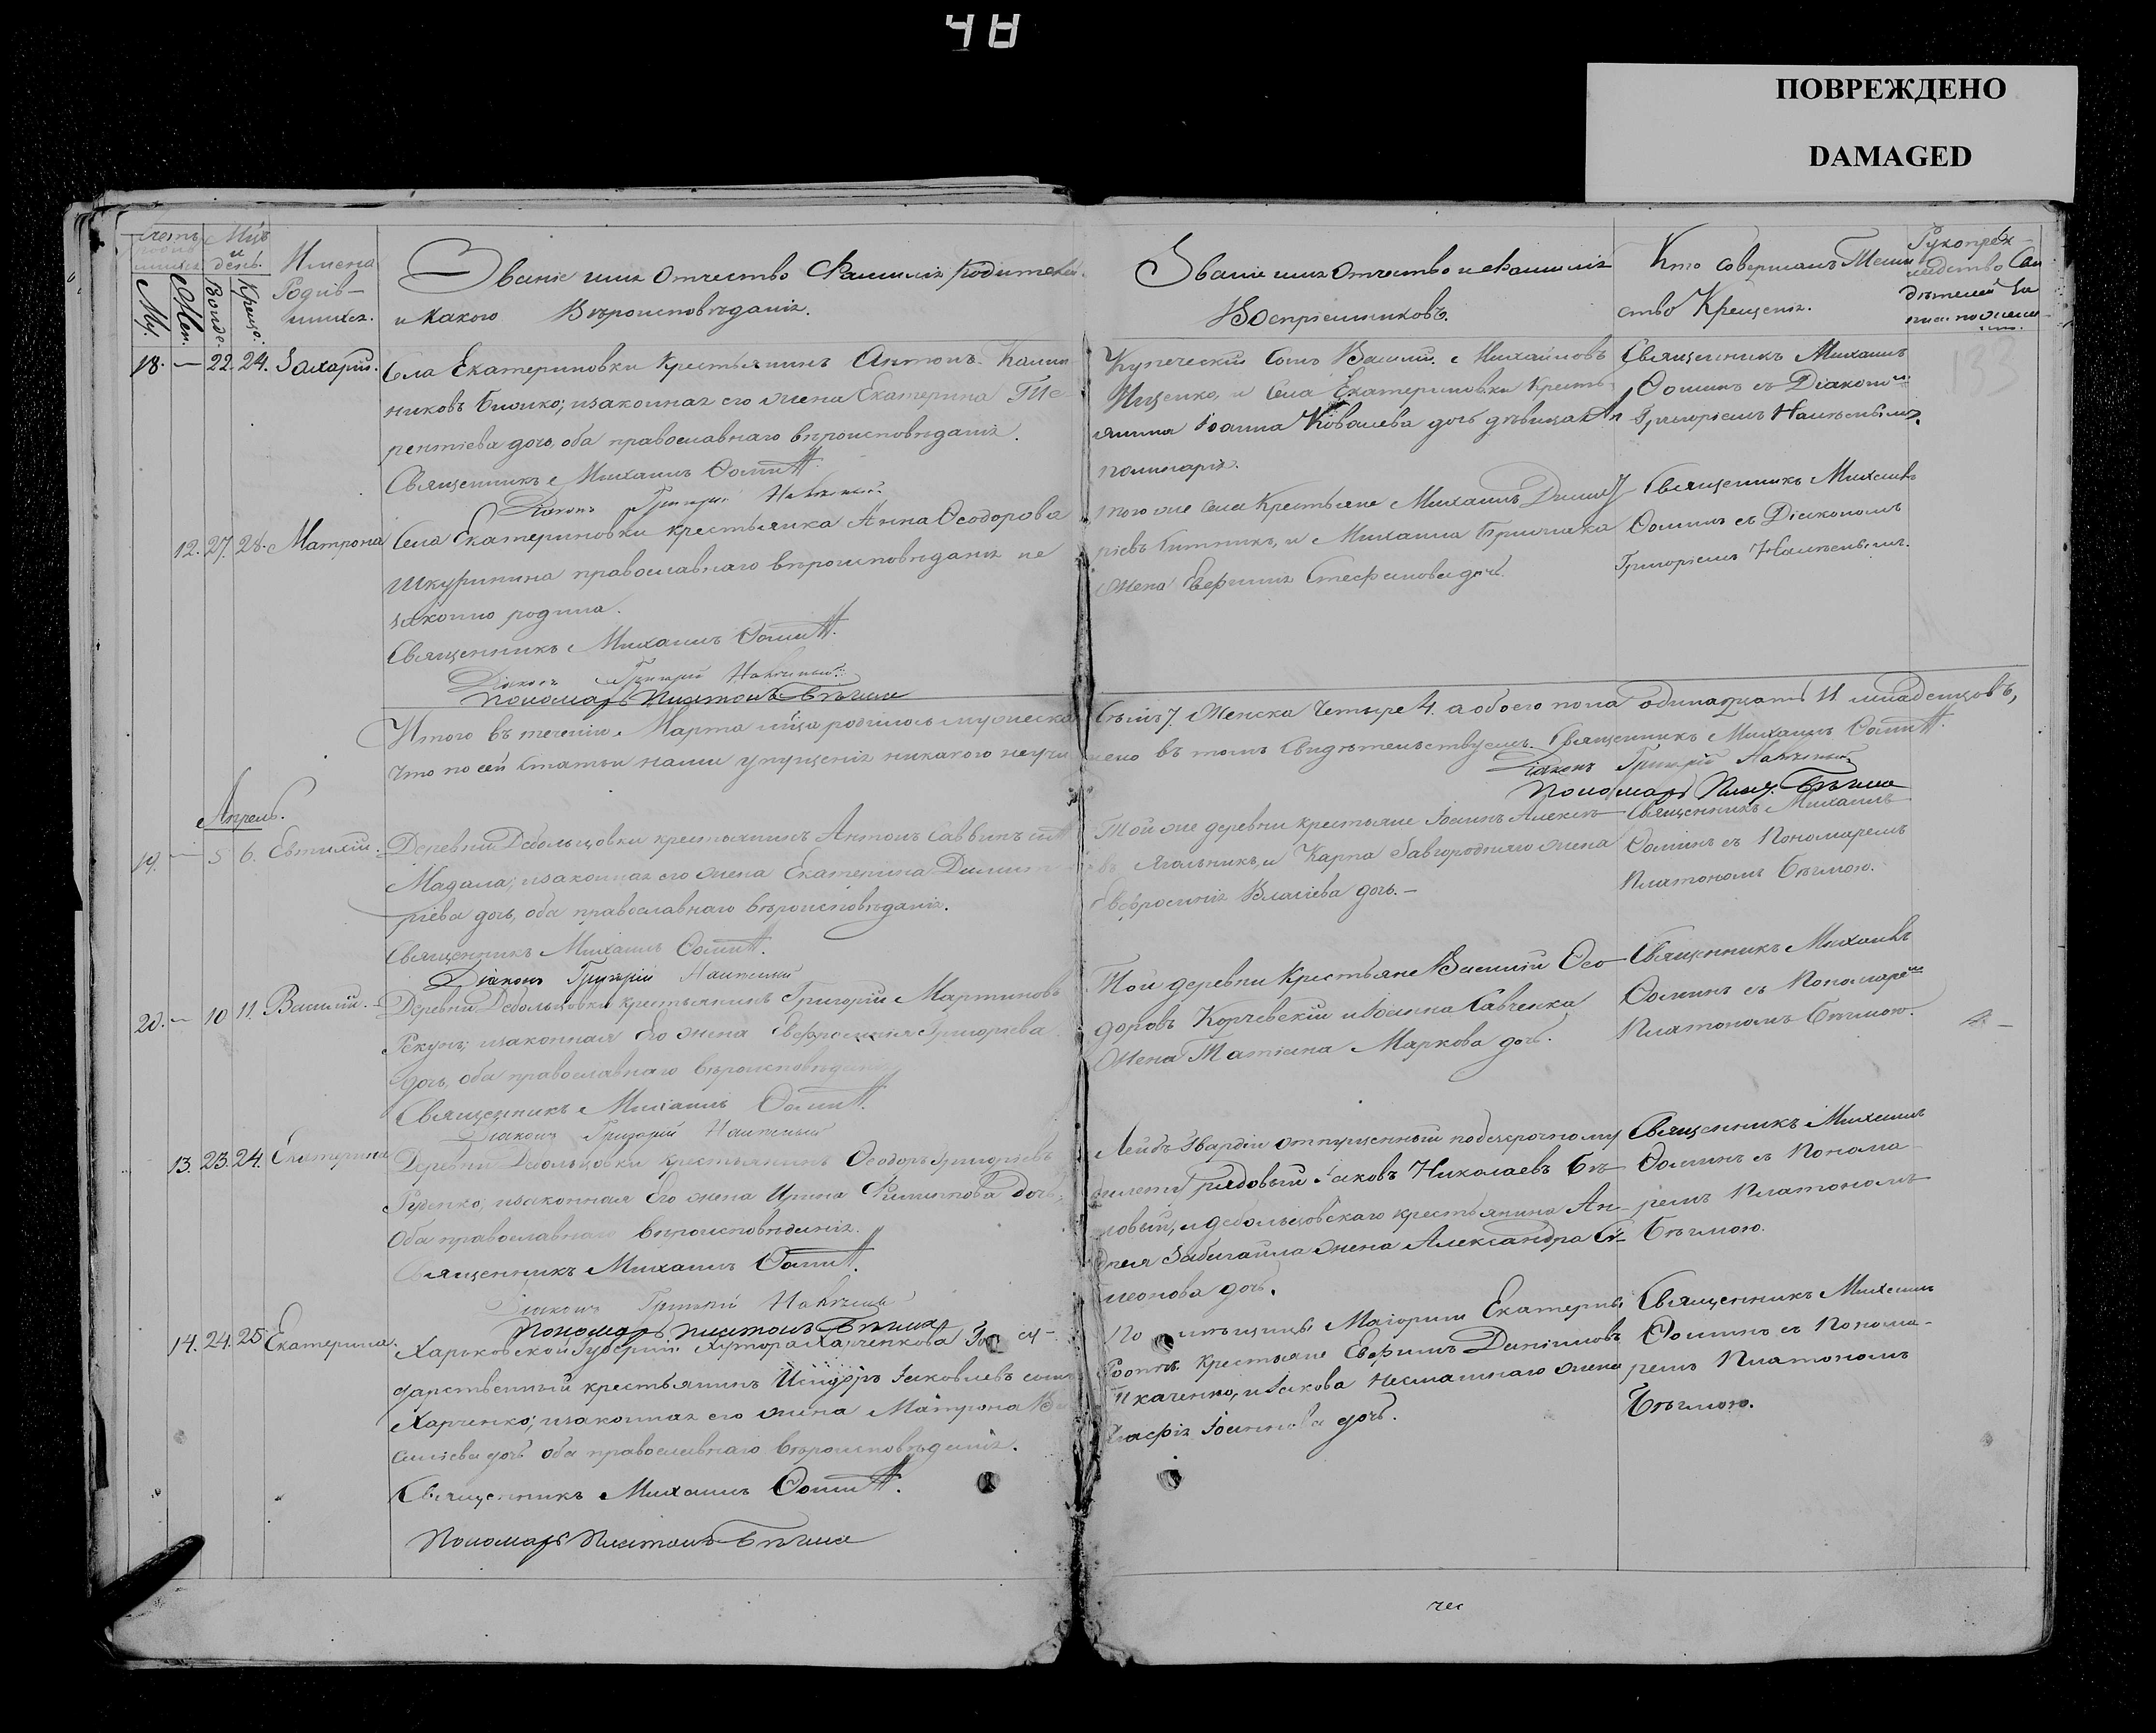 48
ПОВРЕЖДЕНО
DAMAGED
Счетъ родив шихся
Муж. Жен.
Мцъ и день.
Рожде. Креще.
Имена Родив-
шихся.
Званіе имя отчество Фамилія Родителей.
и Какого Вѣроисповѣданія.
Званіе имя отчество и Фамилія
Воспріемниковъ.
Кто совершалъ Таин
ство Крещенія.
Рукоприк-
ладство Сви
дѣтелей
18. — 22. 24. Захарій.
Села Екатериновки Крестьянинъ Антонъ Калин
никовъ ; и законная его жена Екатерина Те-
рентіева дочь, оба православнаго вѣроисповѣданія.
Священникъ Михаилъ Ѳоминъ.
Діаконъ Григорій
Купеческій Сынъ Василій Михайловъ
Ищенко, и Села Екатериновки Кресть-
янина Іоанна Ковалева дочь дѣвица Ап
полинарія.
Священникъ Михаилъ
Ѳоминъ съ Діакономъ
Григоріемъ
193
12. 27. 28. Матрона
Села Екатериновки крестьянка Анна Ѳеодорова
Шкурипина православнаго вѣроисповѣданія не
законно родила.
Священникъ Михаилъ Ѳоминъ.
Діаконъ Григорій
Пономарь Платонъ Бѣгма
того же села Крестьяне Михаилъ Димит
ріевъ Ситникъ, и Михаила
жена Евфимія Стефанова дочь.
Священникъ Михаилъ
Ѳоминъ съ Діакономъ
Григоріемъ
Итого въ теченіи Марта мѣца родилось мужеска
седмь 7. Женска Четыре 4. а обоего пола одинадцать 11 младенцовъ,
Что по сей статьи нами упущенія никакого неучи
нено въ томъ Свидѣтельствуемъ. Священникъ Михаилъ Ѳоминъ.
Діаконъ Григорій
Пономарь Плат. Бѣгма
Апрель.
19. — 5 6. Евтихій.
Деревни Дебольцовки крестьянинъ Антонъ Саввинъ сынъ
Мадала; и законная его жена Екатерина Димит
ріева дочь, оба православнаго вѣроисповѣданія.
Священникъ Михаилъ Ѳоминъ.
Діаконъ Григорій
Той же деревни крестьяне Іоаннъ Алексѣ-
евъ Ягольникъ, и Карпа Завгородняго жена
Евфросинія Власіева дочь. —
Священникъ Михаилъ
Ѳоминъ съ Пономаремъ
Платономъ Бѣгмою.
20. — 10 11. Василій.
Деревни Дебольцовки крестьянинъ Григорій Мартиновъ
Рекунъ; и законная Его жена Евфросинія Григорьева
дочь, оба православнаго вѣроисповѣданія
Священникъ Михаилъ Ѳоминъ.
Діаконъ Григорій
Той деревни Крестьяне Василій Ѳео-
доровъ Корчевскій и Іоанна Савченка
жена Татіана Маркова дочь.
Священникъ Михаилъ
Ѳоминъ съ Пономаремъ
Платономъ Бѣгмою.
13. 23. 24. Екатерина
Деревни Дебольцовки крестьянинъ Ѳеодоръ Григорьевъ
Руденко; и законная Его жена Ирина Филипова дочь,
Оба православнаго вѣроисповѣданія.
Священникъ Михаилъ Ѳоминъ.
Діаконъ Григорій
Пономарь Платонъ Бѣгма
Лейбъ Гвардіи отпущенный по безсрочному
билету рядовый Іаковъ Николаевъ Бѣ-
ловый, и дебольцовскаго крестьянина Ан-
дрея Забигайла жена Александра Си-
меонова дочь.
Священникъ Михаилъ
Ѳоминъ съ Понома
ремъ Платономъ
Бѣгмою.
14. 24. 25 Екатерина.
Харьковской Губерніи Хутора Харченкова Госу-
дарственный крестьянинъ Исидоръ Іаковлевъ сынъ
Харченко; и законная его жена Матрона Ва
силіева дочь оба православнаго вѣроисповѣданія.
Священникъ Михаилъ Ѳоминъ.
Пономарь Платонъ Бѣгма
Помѣщицы Маіорши Екатерины
Роотъ крестьяне Евфимъ Даніиловъ
Ткаченко, и Іакова Несмашнаго жена
Агафія Іоаннова дочь.
Священникъ Михаилъ
Ѳоминъ съ Понома-
ремъ Платономъ
Бѣгмою.